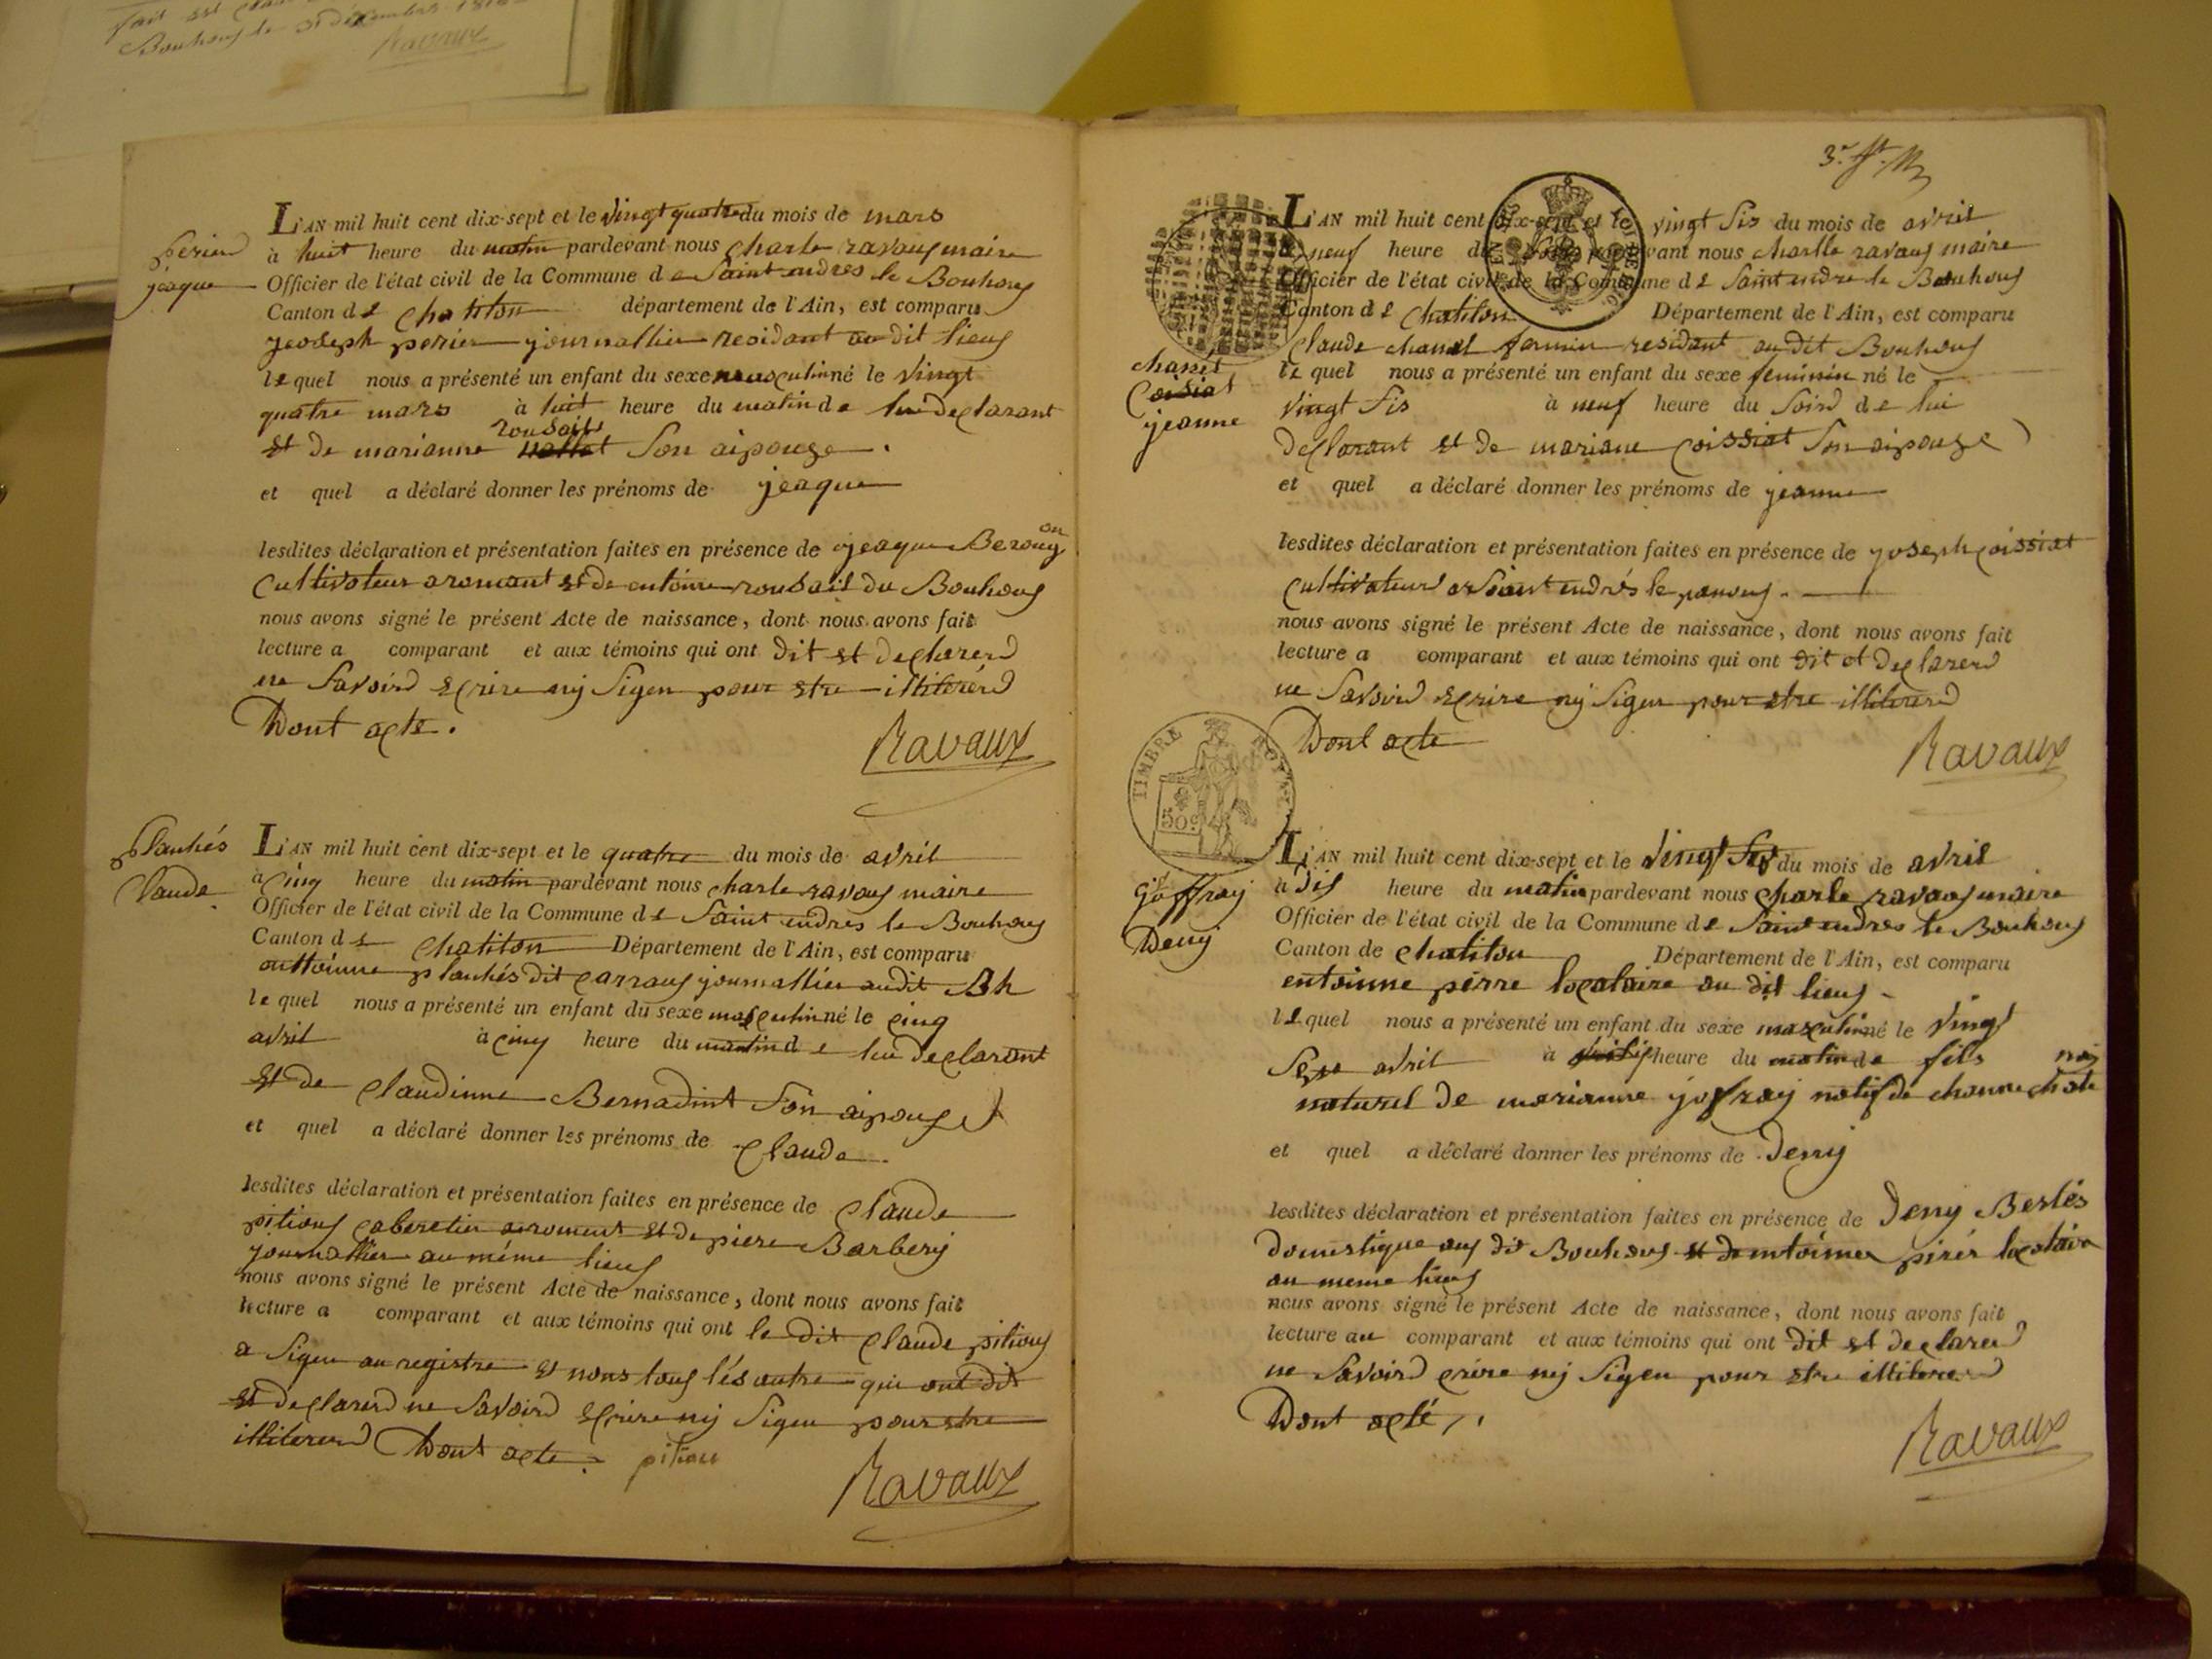 Bouhoux le 31 décembre 181
Ravaux
Perier
jeaque
L'AN mil huit cent dix-sept et le vingt quatre du mois de mars
à huit heure du matin pardevant nous charle ravaux maire
Officier de l'état civil de la Commune de Saint andres le Bouhoux
Canton de chatilon département de l'Ain, est comparu
jeoseph perier journallier residant au dit lieux
lequel nous a présenté un enfant du sexe masculin né le vingt
quatre mars à huit heure du matin de lui declarant
et de marianne roubail son aipouze.
et quel a déclaré donner les prénoms de jeaque
lesdites déclaration et présentation faites en présence de jeaque
Cultivateur aromant et de antoine roubail du Bouhoux
nous avons signé le présent Acte de naissance, dont nous avons fait
lecture a comparant et aux témoins qui ont dit et declarerd
ne Savoird Ecrire nij Sigen pour etre illiterérd
Dont acte.
Ravaux
Plantiés
Claude
L'AN mil huit cent dix-sept et le quatre du mois de avril
à cinq heure du matin pardevant nous charle ravaux maire
Officier de l'état civil de la Commune de Saint andres le Bouhoux
Canton de chatilon Département de l'Ain, est comparu
anttoinne plantiés dit carraux journallier audit Bh
lequel nous a présenté un enfant du sexe masculin né le cinq
avril à cinq heure du mantin de lui declarant
et de Claudinne Bernadint Son aipouze
et quel a déclaré donner les prénoms de Claude
lesdites déclaration et présentation faites en présence de Claude
pitioux caberetier aroment et de piere Barberij
journallier au méme lieux
nous avons signé le présent Acte de naissance, dont nous avons fait
lecture a comparant et aux témoins qui ont le dit Claude pitioux
a Sigen au registre et nons tous lés autre qui ont dit
et declarerd ne Savoird Ecrire nij Sigen pour etre
illitererd Dont acte. pitiou
Ravaux
3.
chanel
Coissiat
jeanne
L'AN mil huit cent dix-sept et le vingt Sis du mois de avril
à neuf heure du pardevant nous charlle ravaux maire
Officier de l'état civil de la Commune de Saint andre le Bouhoux
Canton de chatilon Département de l'Ain, est comparu
Claude chanel fermier residant au dit Bouhoux
lequel nous a présenté un enfant du sexe feminin né le
vingt Sis à neuf heure du Soird de lui
declarant et de mariane coissiat Son aipouze
et quel a déclaré donner les prénoms de jeanne
lesdites déclaration et présentation faites en présence de joseph coissiat
Cultivateur a Saint andrés le
nous avons signé le présent Acte de naissance, dont nous avons fait
lecture a comparant et aux témoins qui ont dit et declarerd
ne Savoird Ecrire nij Sigen pour etre illitererd
Dont acte
Ravaux
TIMBRE ROYAL
50c
joffraij
Denij
L'AN mil huit cent dix-sept et le vingt Sept du mois de avril
à dis heure du matin pardevant nous charle ravaux maire
Officier de l'état civil de la Commune de Saint andres le Bouhoux
Canton de chatilon Département de l'Ain, est comparu
entoinne perre locataire au dit lieux
lequel nous a présenté un enfant du sexe masculin né le vingt
Sept avril à heure du matin de fils
naturel de marianne joffraij natif de
et quel a déclaré donner les prénoms de Denij
lesdites déclaration et présentation faites en présence de Denij Berlés
domestique aux dit Bouhoux et de entoinne pirér locataire
au meme lieux
nous avons signé le présent Acte de naissance, dont nous avons fait
lecture au comparant et aux témoins qui ont dit et declarerd
ne Savoird crire nij Sigen pour etre illitererd
Dont acté
Ravaux